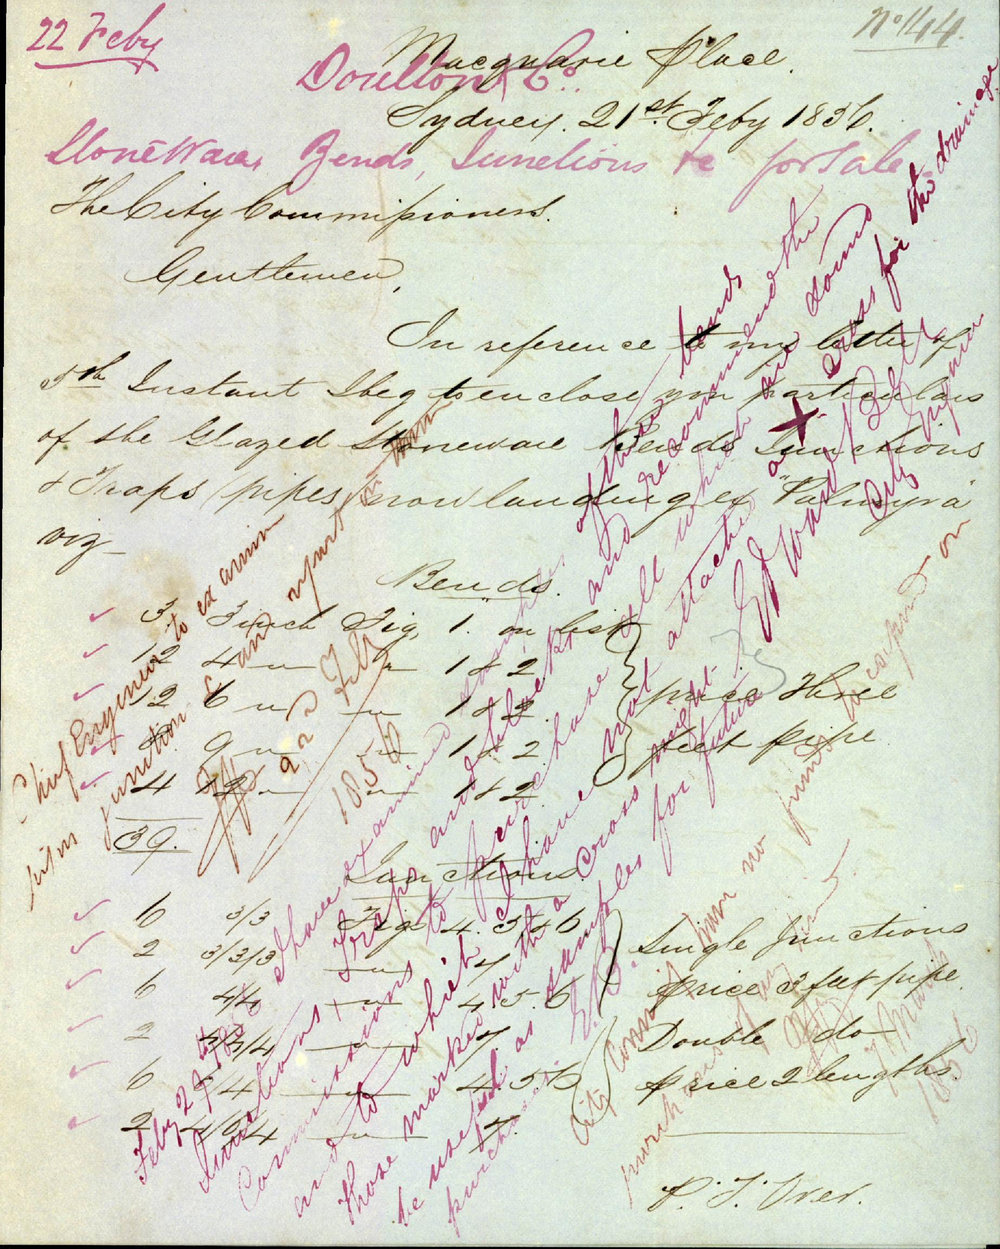 22 Feby
No 144.
Macquarie Place.
Doulton & Co.
Sydney. 21st Feby 1856.
Stoneware, Bends, Junctions &c for sale.
The City Commissioners.
Gentlemen,
In reference to my letter of
5th Instant I beg to enclose you particulars
of the Glazed Stoneware Bends Junctions
& Traps pipes now landing ex "Palmyra"
viz
Bends.
3. 3 inch Fig. 1. on list
12 4 " " 1 & 2
12 6 " " 1 & 2.
9 " " 1 & 2.
4 12 " " 1 & 2.
price Three
feet pipe
39.
Junctions.
6 3/3 Figs 4. 5 & 6
2 3/3/3 " 7
6 4/4 " 4 5. 6
2 " 7
6 " 4 5 6
2 " 7
Single Junctions
price 3 feet pipe.
Double do
price 2 lengths
P. T. Iver.
Chief Engineer to examine
and report
22 Feb
1856
Feby 29th
I have examined samples of these bends
Junctions, traps and blocks and recommend the
Commissioners to purchase all which are down
and to which I have not attached a + cross for the drainage
those marked with a cross might
be useful as samples for future
purchases E.B.
Edward Bell
City Engineer
City Commissioners have no funds to expend on
purchases of any
March
1856